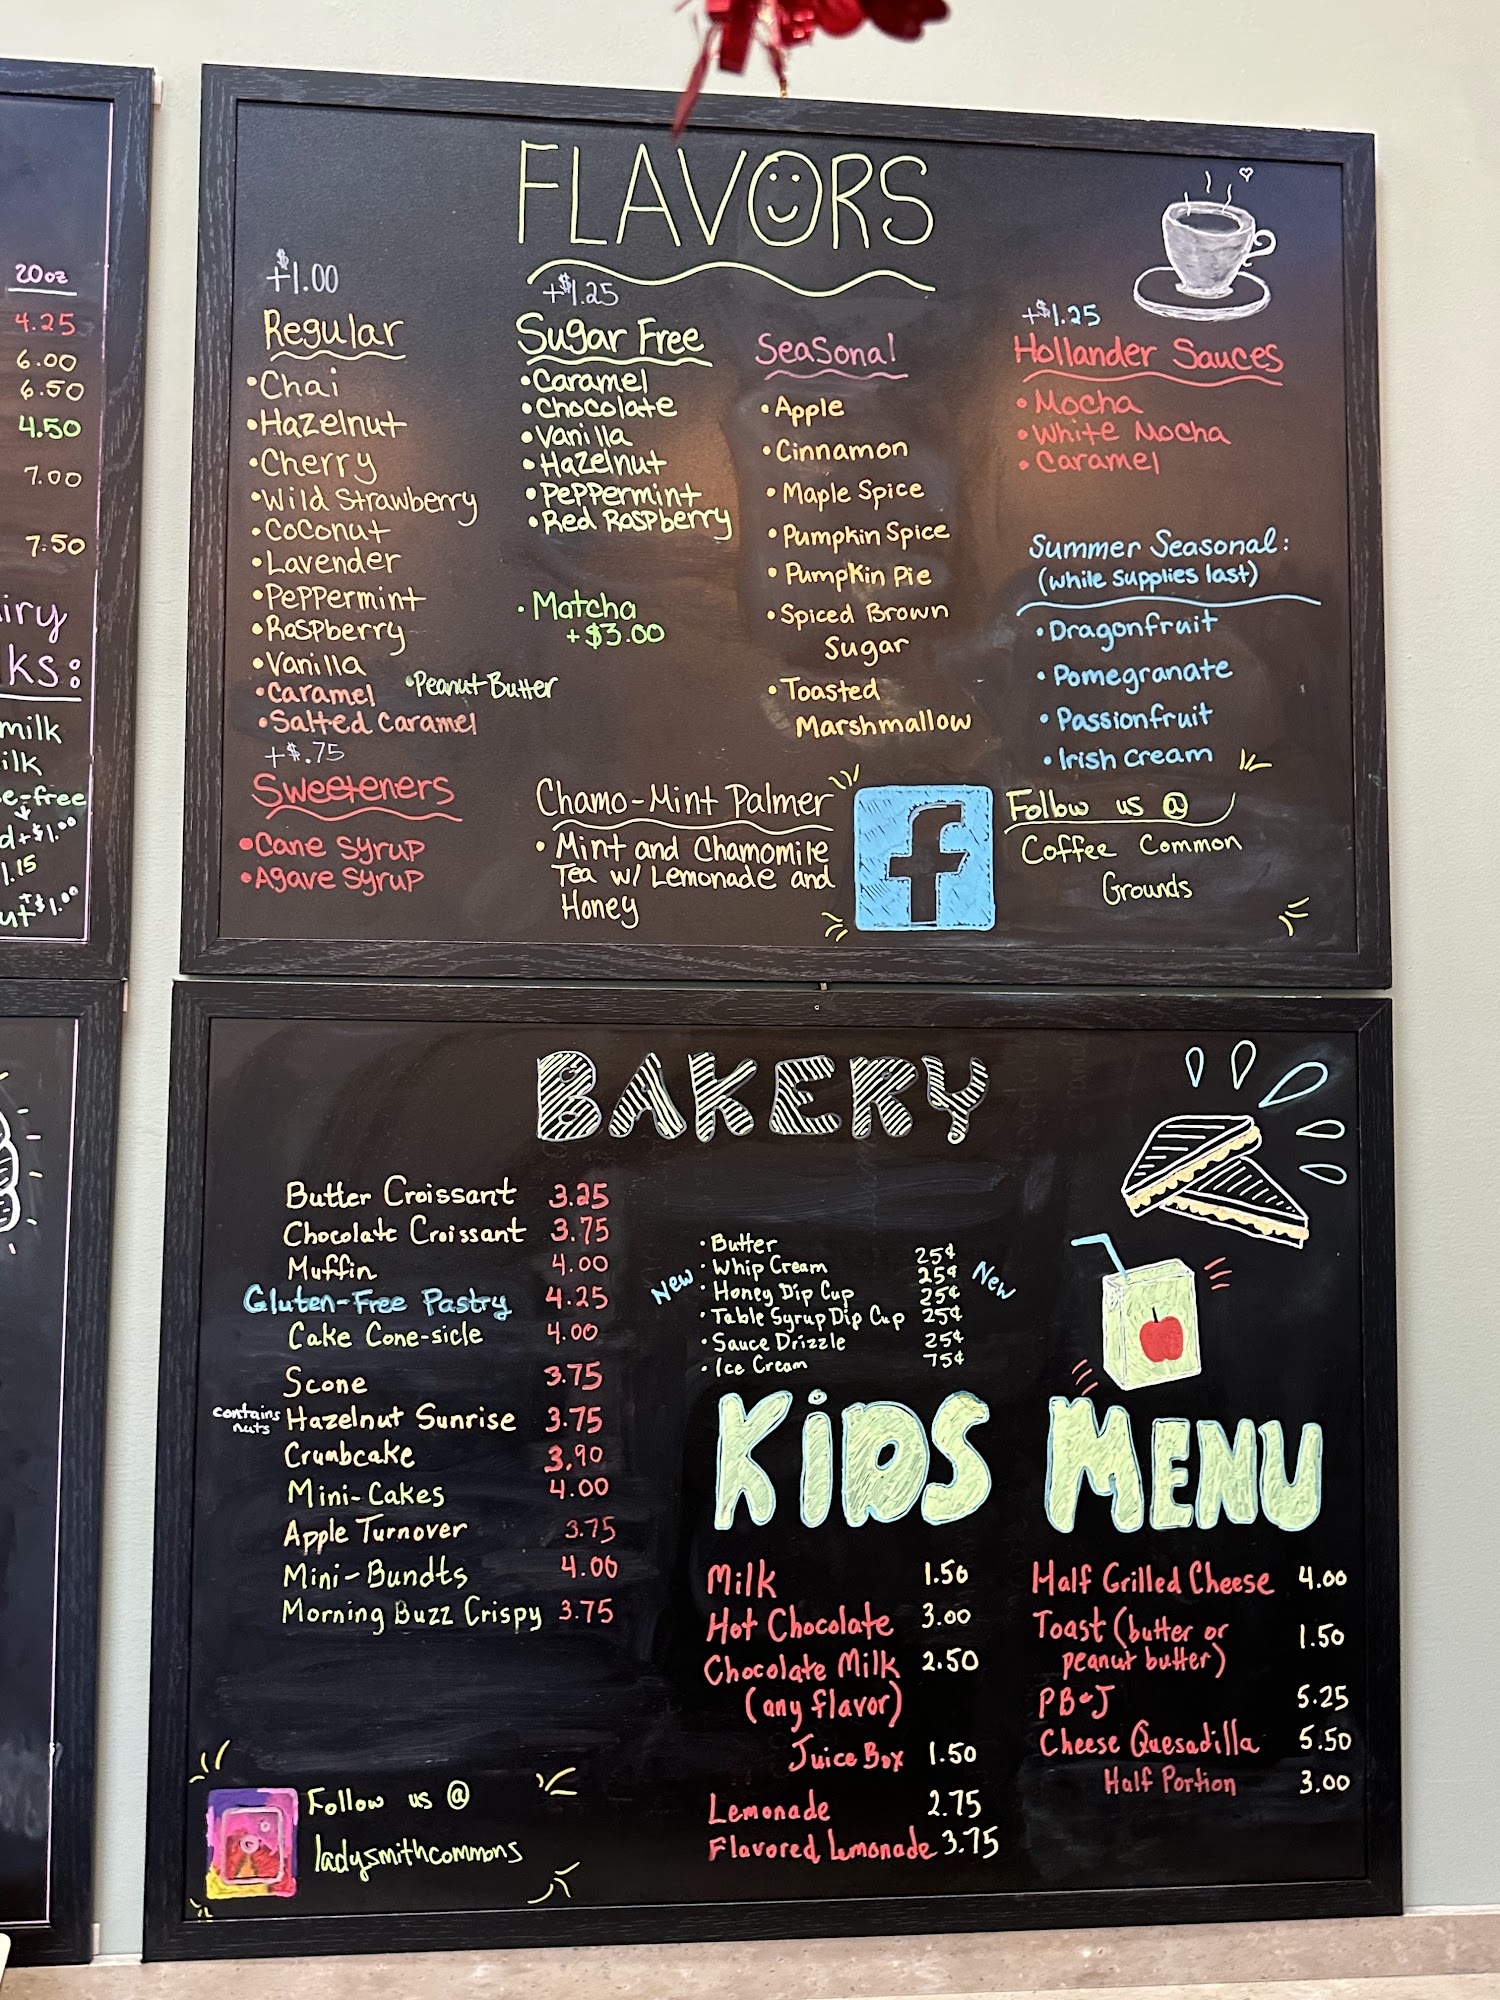 20oz
4.25
6.00
6.50
4.50
7.00
7.50
milk
e-free
+$1.00
1.15
+$1.00
FLAVORS
+$1.00
Regular
•Chai
•Hazelnut
•Cherry
•Wild Strawberry
•Coconut
•Lavender
•Peppermint
•Raspberry
•Vanilla
•Caramel
•Peanut Butter
•Salted Caramel
+$.75
Sweeteners
•Cane Syrup
•Agave Syrup
+$1.25
Sugar Free
•Caramel
•Chocolate
•Vanilla
•Hazelnut
•Peppermint
•Red Raspberry
•Matcha
+$3.00
Seasonal
•Apple
•Cinnamon
•Maple Spice
•Pumpkin Spice
•Pumpkin Pie
•Spiced Brown
Sugar
•Toasted
Marshmallow
+$1.25
Hollander Sauces
•Mocha
•White Mocha
•Caramel
Summer Seasonal:
(while supplies last)
•Dragonfruit
•Pomegranate
•Passionfruit
•Irish Cream
Chamo-Mint Palmer
•Mint and Chamomile
Tea w/ Lemonade and
Honey
f
Follow us @
Coffee Common
Grounds
BAKERY
Butter Croissant 3.25
Chocolate Croissant 3.75
Muffin 4.00
Gluten-Free Pastry 4.25
Cake Cone-sicle 4.00
Scone 3.75
contains nuts Hazelnut Sunrise 3.75
Crumbcake 3.90
Mini-Cakes 4.00
Apple Turnover 3.75
Mini-Bundts 4.00
Morning Buzz Crispy 3.75
•Butter 25¢
New •Whip Cream 25¢ New
•Honey Dip Cup 25¢
•Table Syrup Dip Cup 25¢
•Sauce Drizzle 25¢
•Ice Cream 75¢
KIDS MENU
Milk 1.50
Hot Chocolate 3.00
Chocolate Milk 2.50
(any flavor)
Juice Box 1.50
Lemonade 2.75
Flavored Lemonade 3.75
Half Grilled Cheese 4.00
Toast (butter or
peanut butter) 1.50
PB&J 5.25
Cheese Quesadilla 5.50
Half Portion 3.00
Follow us @
ladysmithcommons